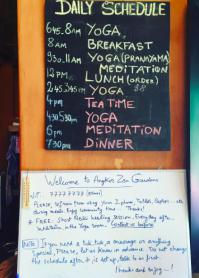 DAILY SCHEDULE
6.45-8AM YOGA
8AM BREAKFAST
9.30-11AM YOGA (PRANAYAMA)
MEDITATION
12PM LUNCH (ORDER)
YOGA
4pm TEA TIME
YOGA
6pm MEDITATION
7pm DINNER
Welcome to Angkor Zen Gardens
Please, refrain from using your I.phone, Tablet, Laptop. etc
during meals. Enjoy community time. Thanks!
FREE: Sound healing session, Everyday after
Meditation in the Yoga room.
Note: If you need a tuk tuk, a massage or anything
special, Please, let us know in advance. Do not change
the schedule after it is set up, talk to us first.
Thanks and enjoy